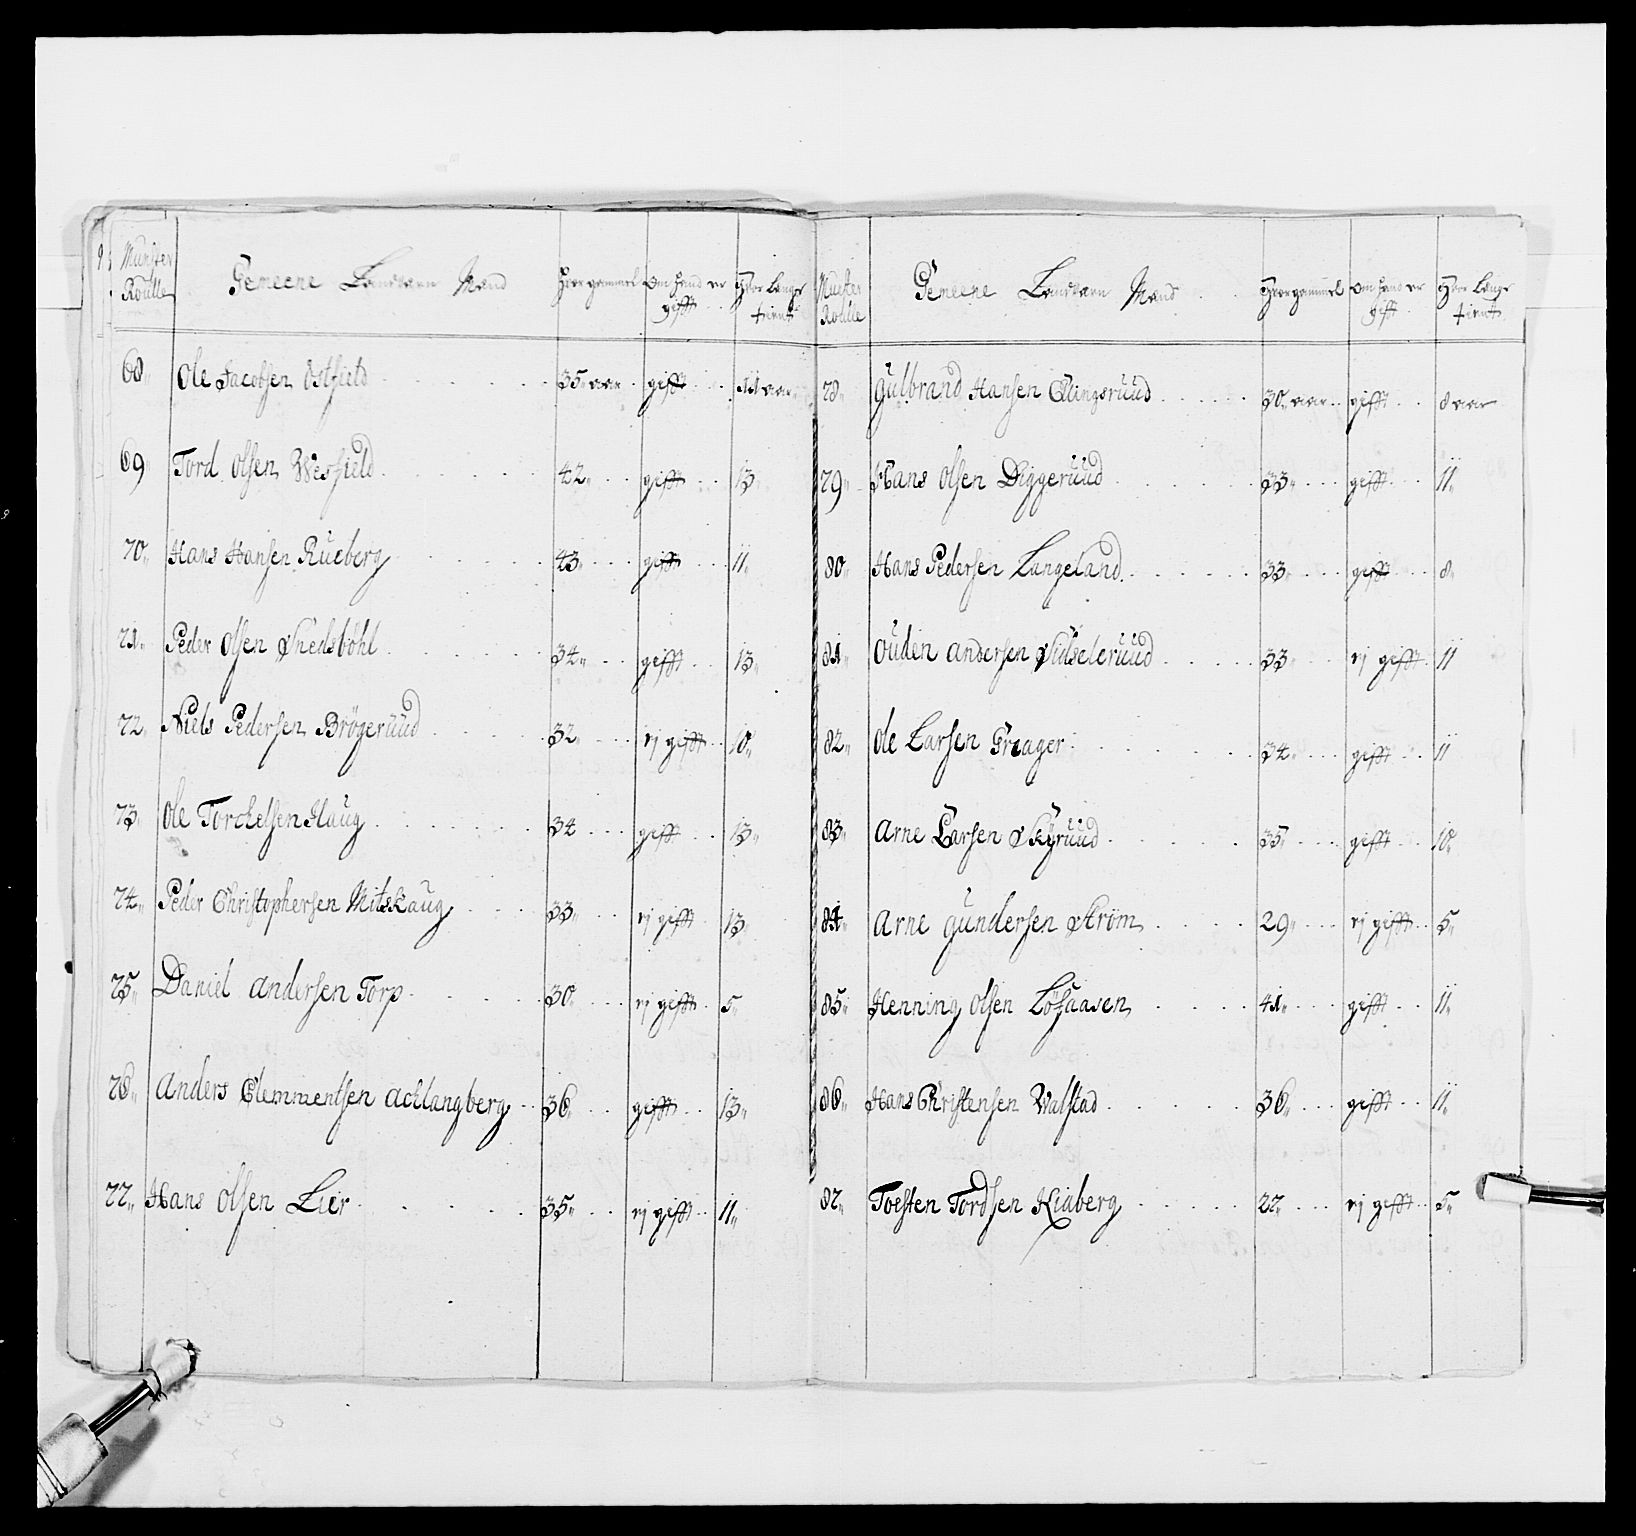 Munster Roulle Gemeene Landværn Mænd Hvor gammel Om hand er gifft Hvor længe tient
68 Ole Jacobsen Ostfield 35 aar gifft 11 aar
69 Tord Olsen Wesfield 42 gifft 13
70 Hans Hansen Rueberg 43 gifft 11
71 Peder Olsen Snedsböhl 34 gifft 13
72 Niels Pedersen Brögerüüd 32 ej gifft 10
73 Ole Torchelsen Haug 34 gifft 13
74 Peder Christophersen Mitskaug 33 ej gifft 13
75 Daniel Andersen Torp 30 ej gifft 5
76 Anders Clemmentsen Achlangberg 36 gifft 13
77 Hans Olsen Lier 35 ej gifft 11
Muster Roulle Gemeene Landværn Mænd Hvor gammel Om hand er gift Hvor længe tient
78 Gulbrand Hansen Ellingsrüüd 30 aar gifft 8 aar
79 Hans Olsen Diggerüüd 33 gifft 11
80 Hans Pedersen Langeland 33 gifft 8
81 Ouden Andersen Sidselerüüd 33 ej gifft 11
82 Ole Larsen Præger 34 gifft 11
83 Arne Larsen Skyrüüd 35 gifft 10
84 Arne Gundersen Ström 29 ej gifft 5
85 Henning Olsen Löfaasen 41 gifft 11
86 Hans Christensen Walstad 36 gifft 11
87 Torsten Tordsen Kiaberg 22 ej gifft 5